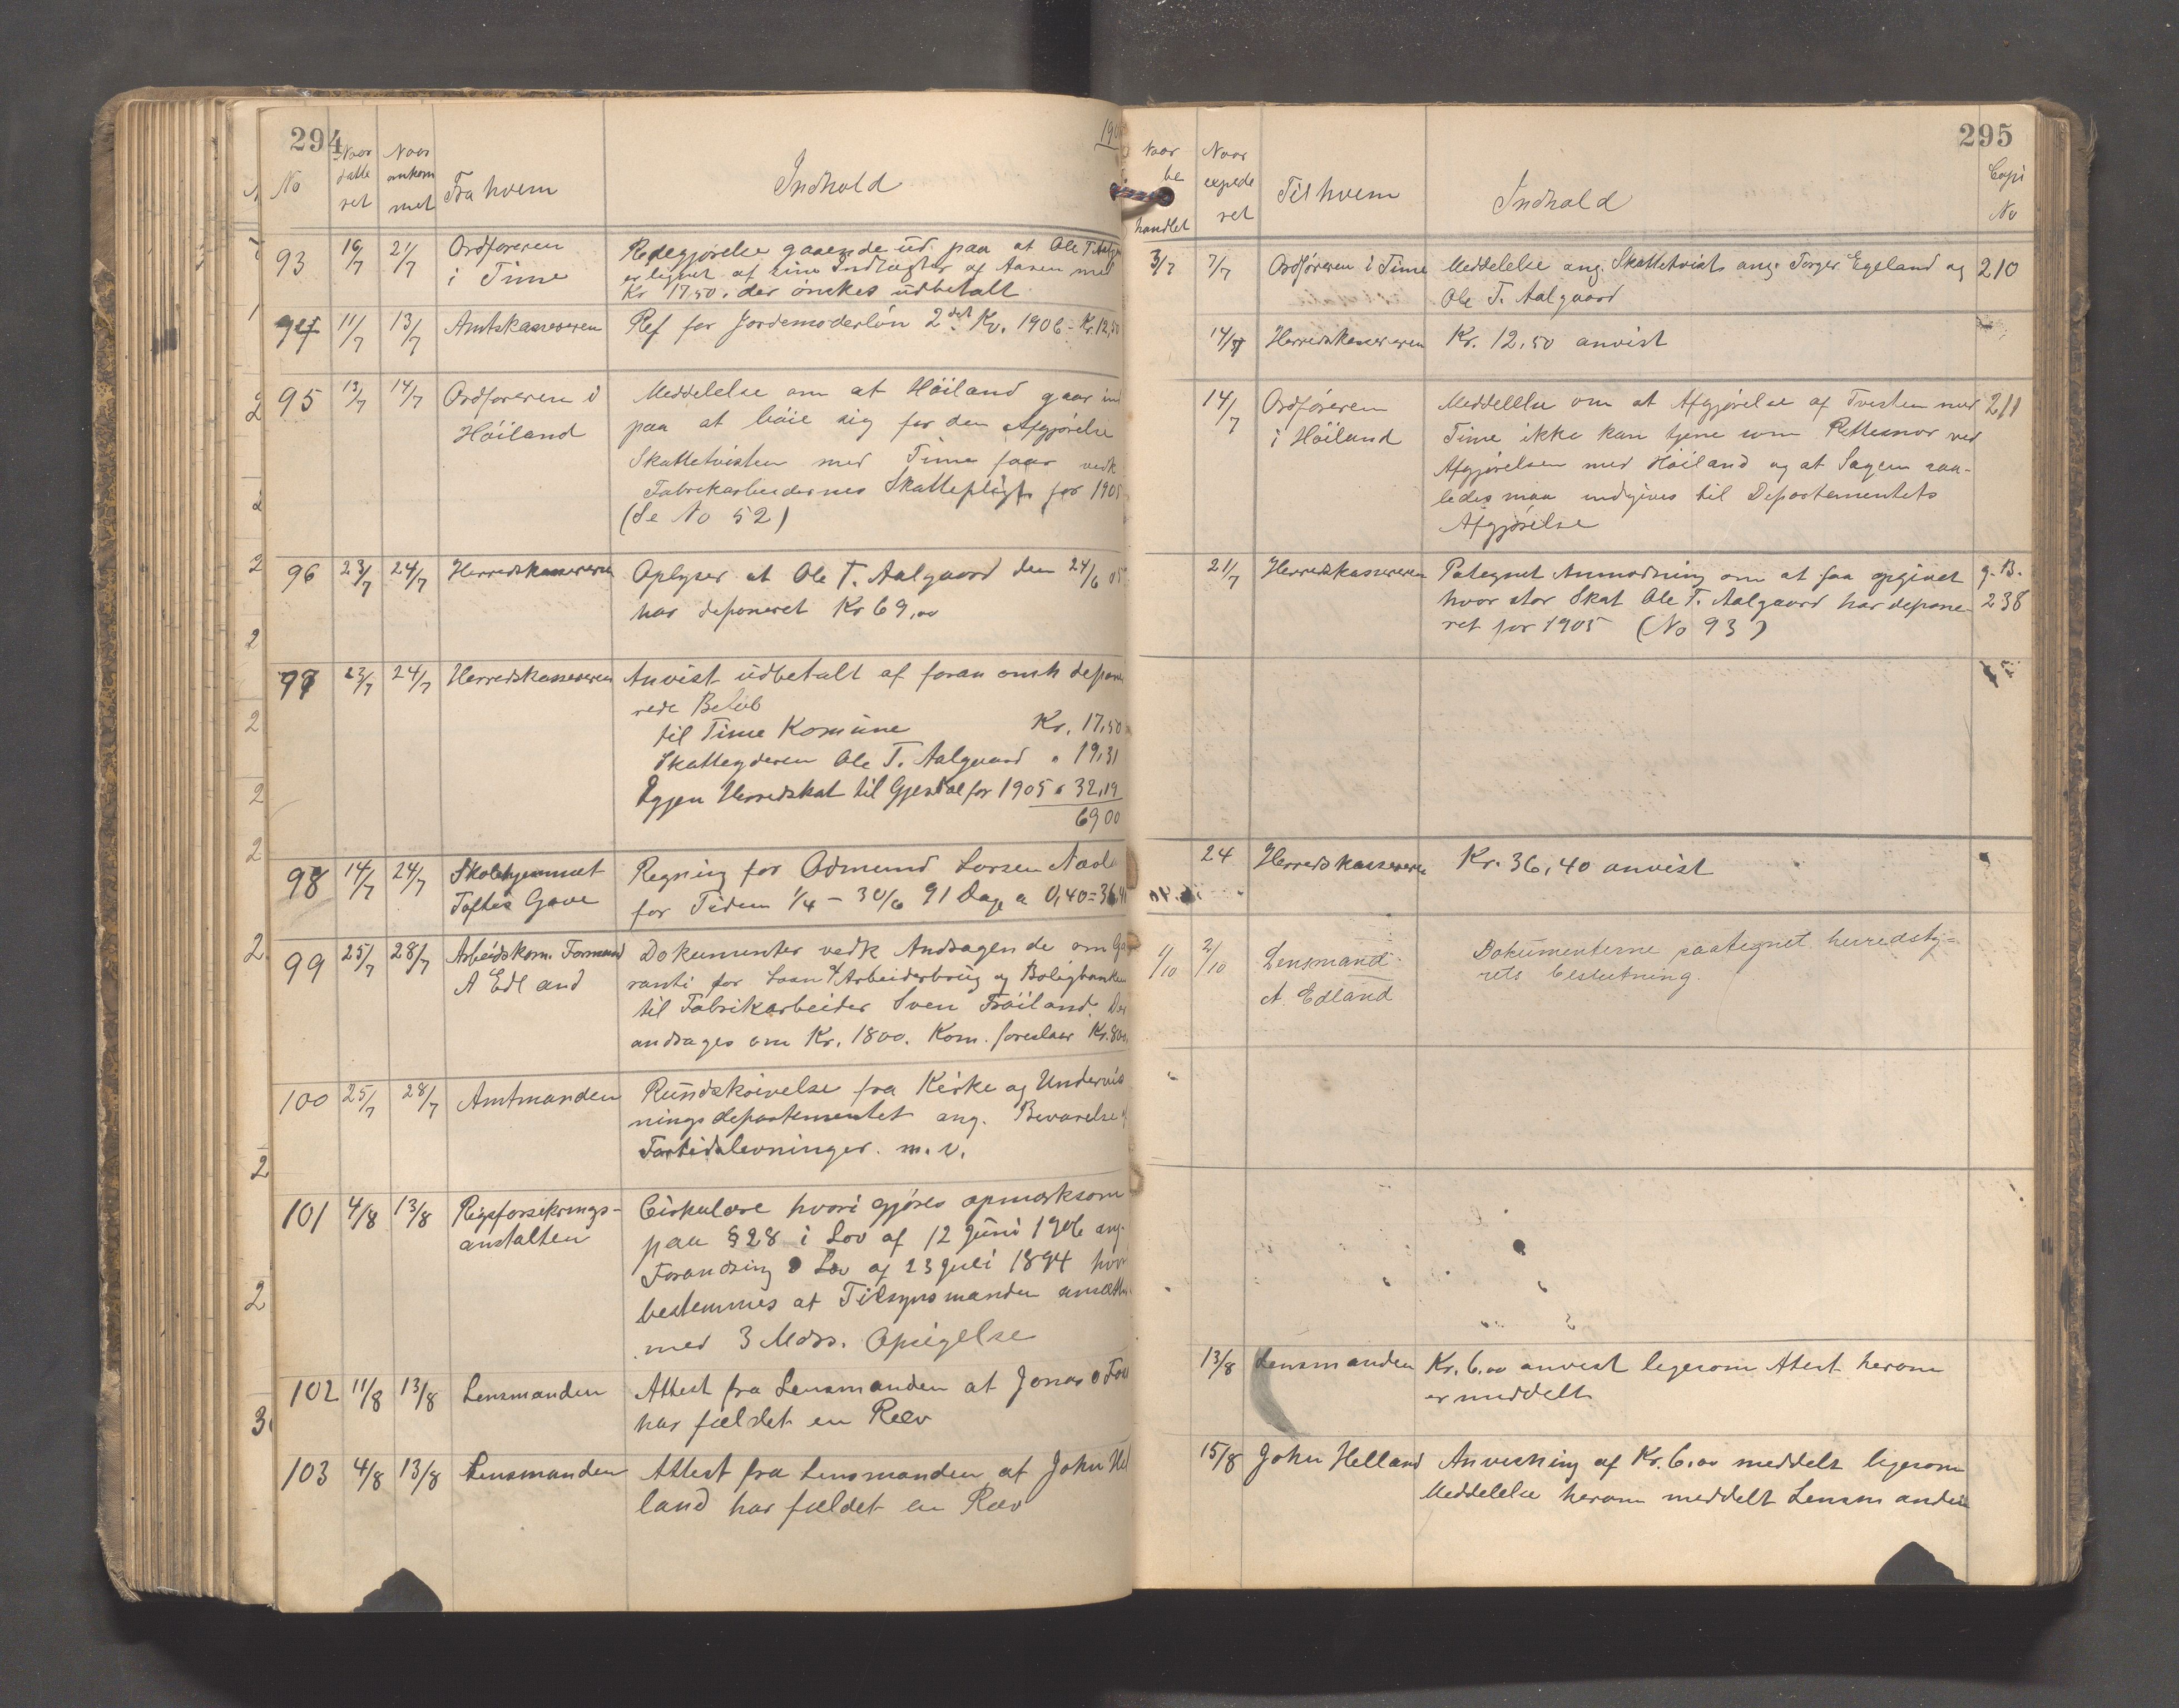 294
190
No
Naar datte ret
Naar ankom met
Fra hvem
Indhold
93 19/7 21/7 Ordføreren i Time
Redegjørelse gaaende ud paa at Ole T. Aalg
er lignet af sine Indtægter af Aaren med
Kr 17,50. der ønskes udbetalt
94 11/7 13/7 Amtskassereren
Ref for Jordemoderløn 2det Kv. 1906 - Kr. 12,50
95 13/7 14/7 Ordføreren i Høiland
Meddelelse om at Høiland gaar ind
paa at bøie sig for den Afgjørelse
Skattetvisten med Time faar vedk
Fabrikarbeidernes Skattepligt for 1905
(Se No 52)
96 23/7 24/7 Herredskassereren
Oplyser at Ole T. Aalgaard den 24/6 05
har deponeret Kr 69,00
97 23/7 24/7 Herredskassereren
Anvist udbetalt af foran omh depone
rede Beløb
til Time Komune Kr. 17,50
Skatteyderen Ole T. Aalgaard " 19,31
Igjen Herredskat til Gjesdal for 1905 " 32,19
6900
98 14/7 24/7 Skolehjemmet Toftes Gave
Regning for Odmund Larsen Nødl
for Tiden 1/4 - 30/6 91 Dage a 0,40 = 36,4
99 25/7 28/7 Arbeidskom. Formand A Edland
Dokumenter vedk Andragende om Ga
ranti for Laan af Arbeiderbrug og Boligbanken
til Fabrikarbeider Sven Frøiland. Der
andrages om Kr. 1800. Kom. foreslaar Kr. 800
100 25/7 28/7 Amtmanden
Rundskrivelse fra Kirke og Undervis
ningsdepartementet ang. Bevarelse af
Fortidslevninger. m. v.
101 4/8 13/8 Rigsforsikrings-
anstalten
Cirkulære hvori gjøres opmærksom
paa § 28 i Lov af 12 Juni 1906 ang.
Forandring i Lov af 23 Juli 1894 hvor
bestemmes at Tilsynsmanden ansætte
med 3 Mdrs. Opsigelse
102 11/8 13/8 Lensmanden
Attest fra Lensmanden at Jonas O Fos
har fældet en Ræv
103 4/8 13/8 Lensmanden
Attest fra Lensmanden at John Hel
land har fældet en Ræv
295
Naar be handlet
Naar expede ret
Til hvem
Indhold
Copi No
3/7 7/7 Ordføreren i Time
Meddelelse ang. Skattetvists ang. Torger Egeland og 210
Ole T. Aalgaard
14/7 Herredskassereren Kr. 12,50 anvist
14/7 Ordføreren i Høiland
Meddelelse om at Afgjørelse af Tvisten med 211
Time ikke kan tjene som Rettesnor ved
Afgjørelsen med Høiland og at Sagen saa-
ledes maa indgives til Departementets
Afgjørelse
21/7 Herredskassereren
Pategnet Anmodning om at faa opgivet g. B.
hvor stor Skat Ole T. Aalgaard har depone- 238
ret for 1905 (No 93)
24 Herredskassereren Kr. 36,40 anvist
1/10 2/10 Lensmand A. Edland
Dokumenterne paategnet herredsty-
rets beslutning
13/8 Lensmanden Kr. 6,00 anvist ligesom Atest herom
er meddelt
15/8 John Helland Anvisning af Kr. 6,00 meddelt ligesom
Meddelelse herom meddelt Lensmanden